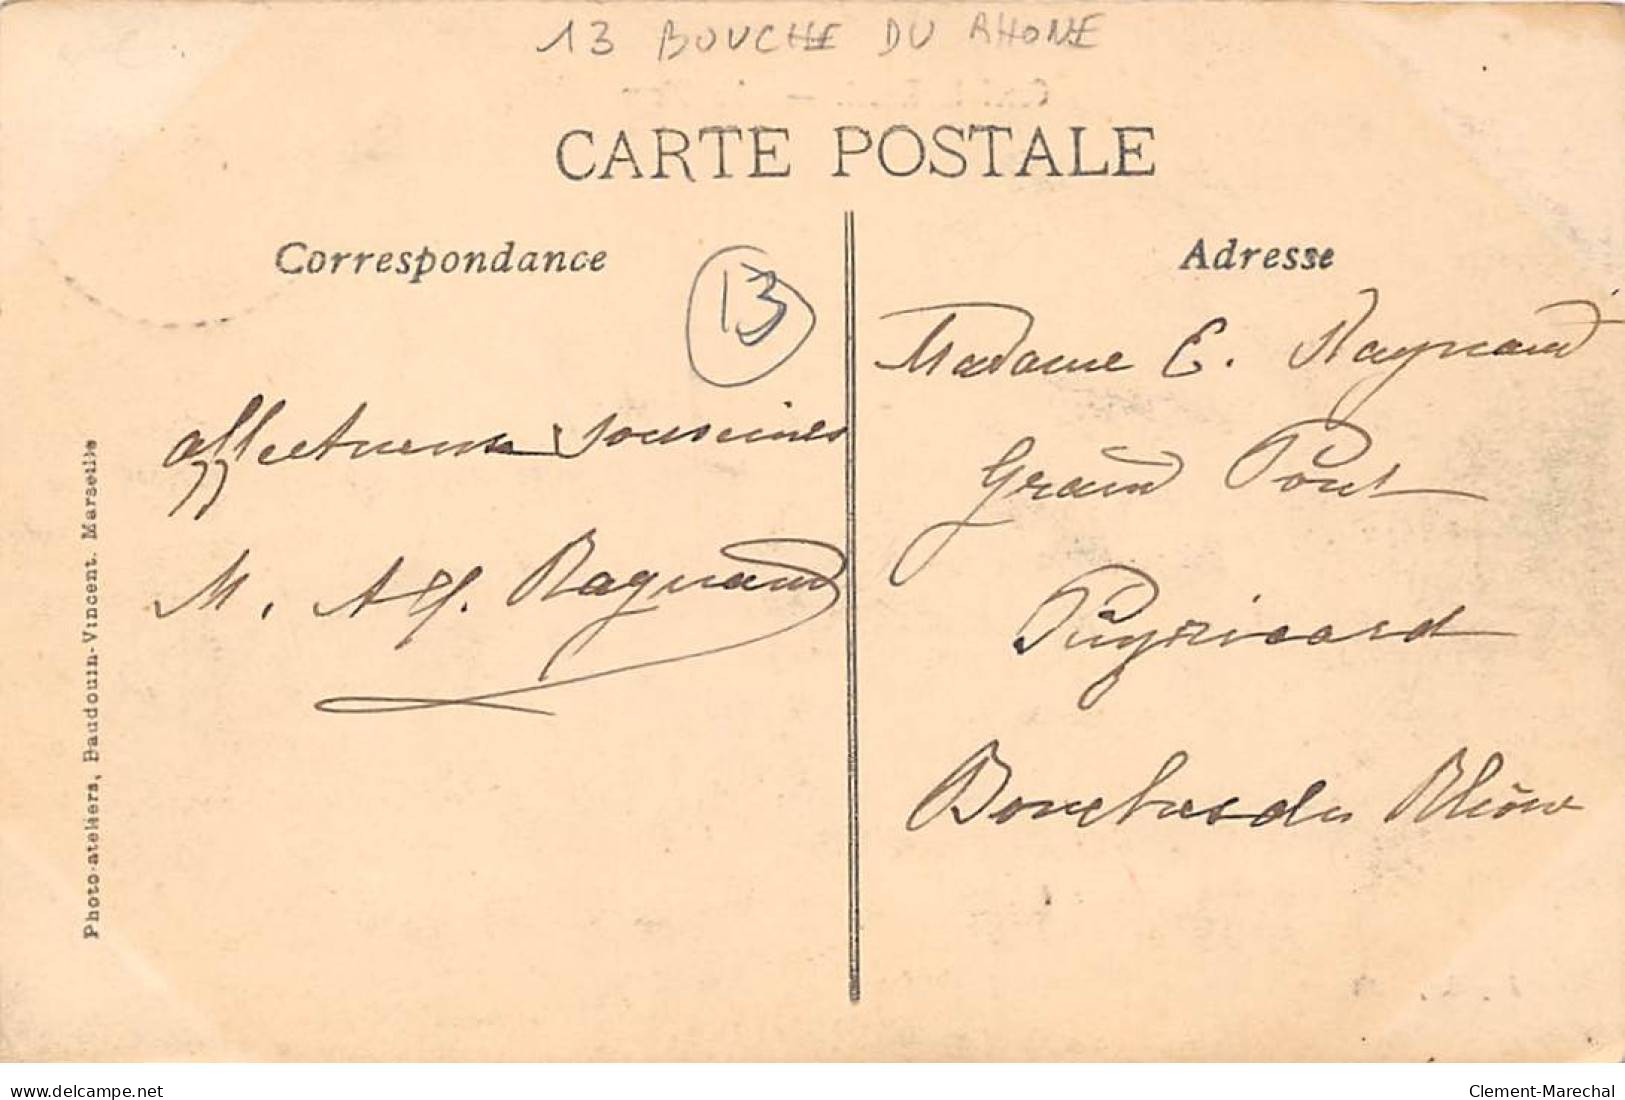 13 BOUCHE DU RHONE
CARTE POSTALE
Correspondance
13
affectueux souvenirs
M. Alf. Raynaud
Photo-ateliers, Baudouin-Vincent. Marseille
Adresse
Madame E. Raynaud
Grand Pont
Puyricard
Bouches du Rhône
delcampe.net
Clement-Marechal